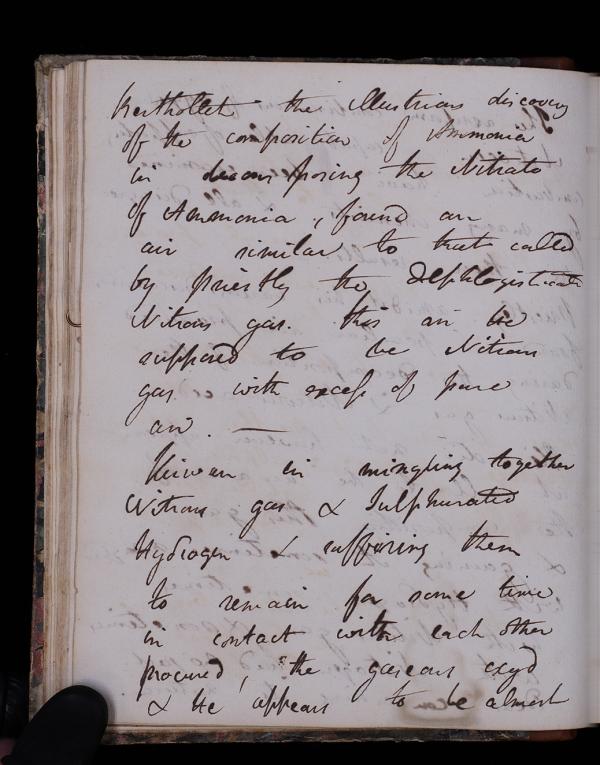 Berthollet the illustrious discovery
of the composition of Ammonia
in decomposing the Nitrate
of Ammonia, found an
air similar to that called
by Priestly the Dephlogisticate
Nitrous gas. this air he
supposed to be Nitrous
gas with excess of pure
air. —
Kirwan in mingling together
Nitrous gas & Sulphurated
Hydrogen & suffering them
to remain for some time
in contact with each other
procured, the gaseous oxyd
& he appears to be almost